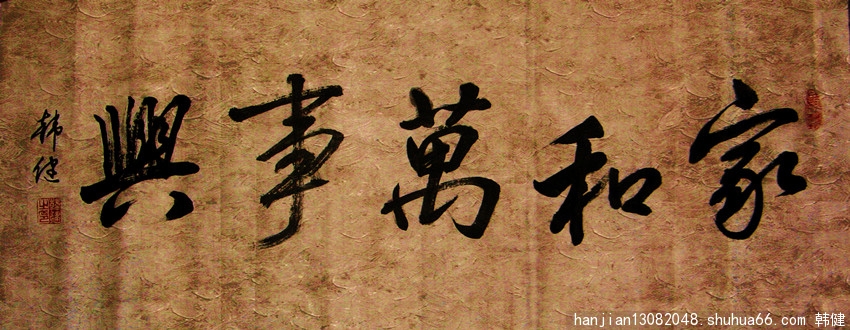 家和萬事興
韩健
hanjian13082048.shuhua66.com 韩健